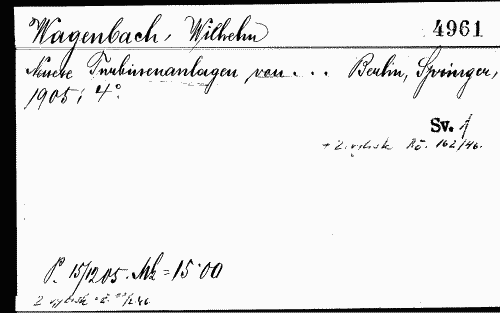 Wagenbach, Wilhelm 4961
Neuere Turbinenanlagen von... Berlin, Springer,
1905; 4°.
Sv. 1
+ 2. výtisk Rő. 162/46.
P. 15/12 05. Mk = 15·00
2 výtisk